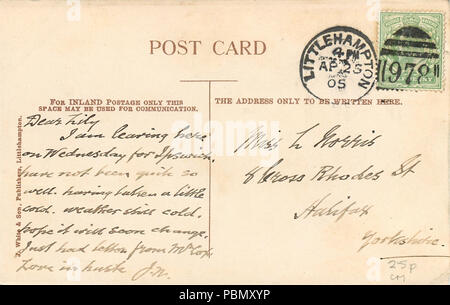 POST CARD
LITTLEHAMPTON
4. PM
AP 25
05
978
FOR INLAND POSTAGE ONLY THIS
SPACE MAY BE USED FOR COMMUNICATION.
THE ADDRESS ONLY TO BE WRITTEN HERE.
J. White & Son, Publishers, Littlehampton.
Dear Lily
I am leaving here
on Wednesday for Ipswich.
have not been quite so
well. having taken a little
cold. weather still cold.
hope it will soon change.
Just had letter from Mrs Cox.
Love in haste J.N.
Miss L Norris
8 Cross Rhodes St
Halifax
Yorkshire.
25p
CM
alamy
Image ID: PBMXYP
www.alamy.com